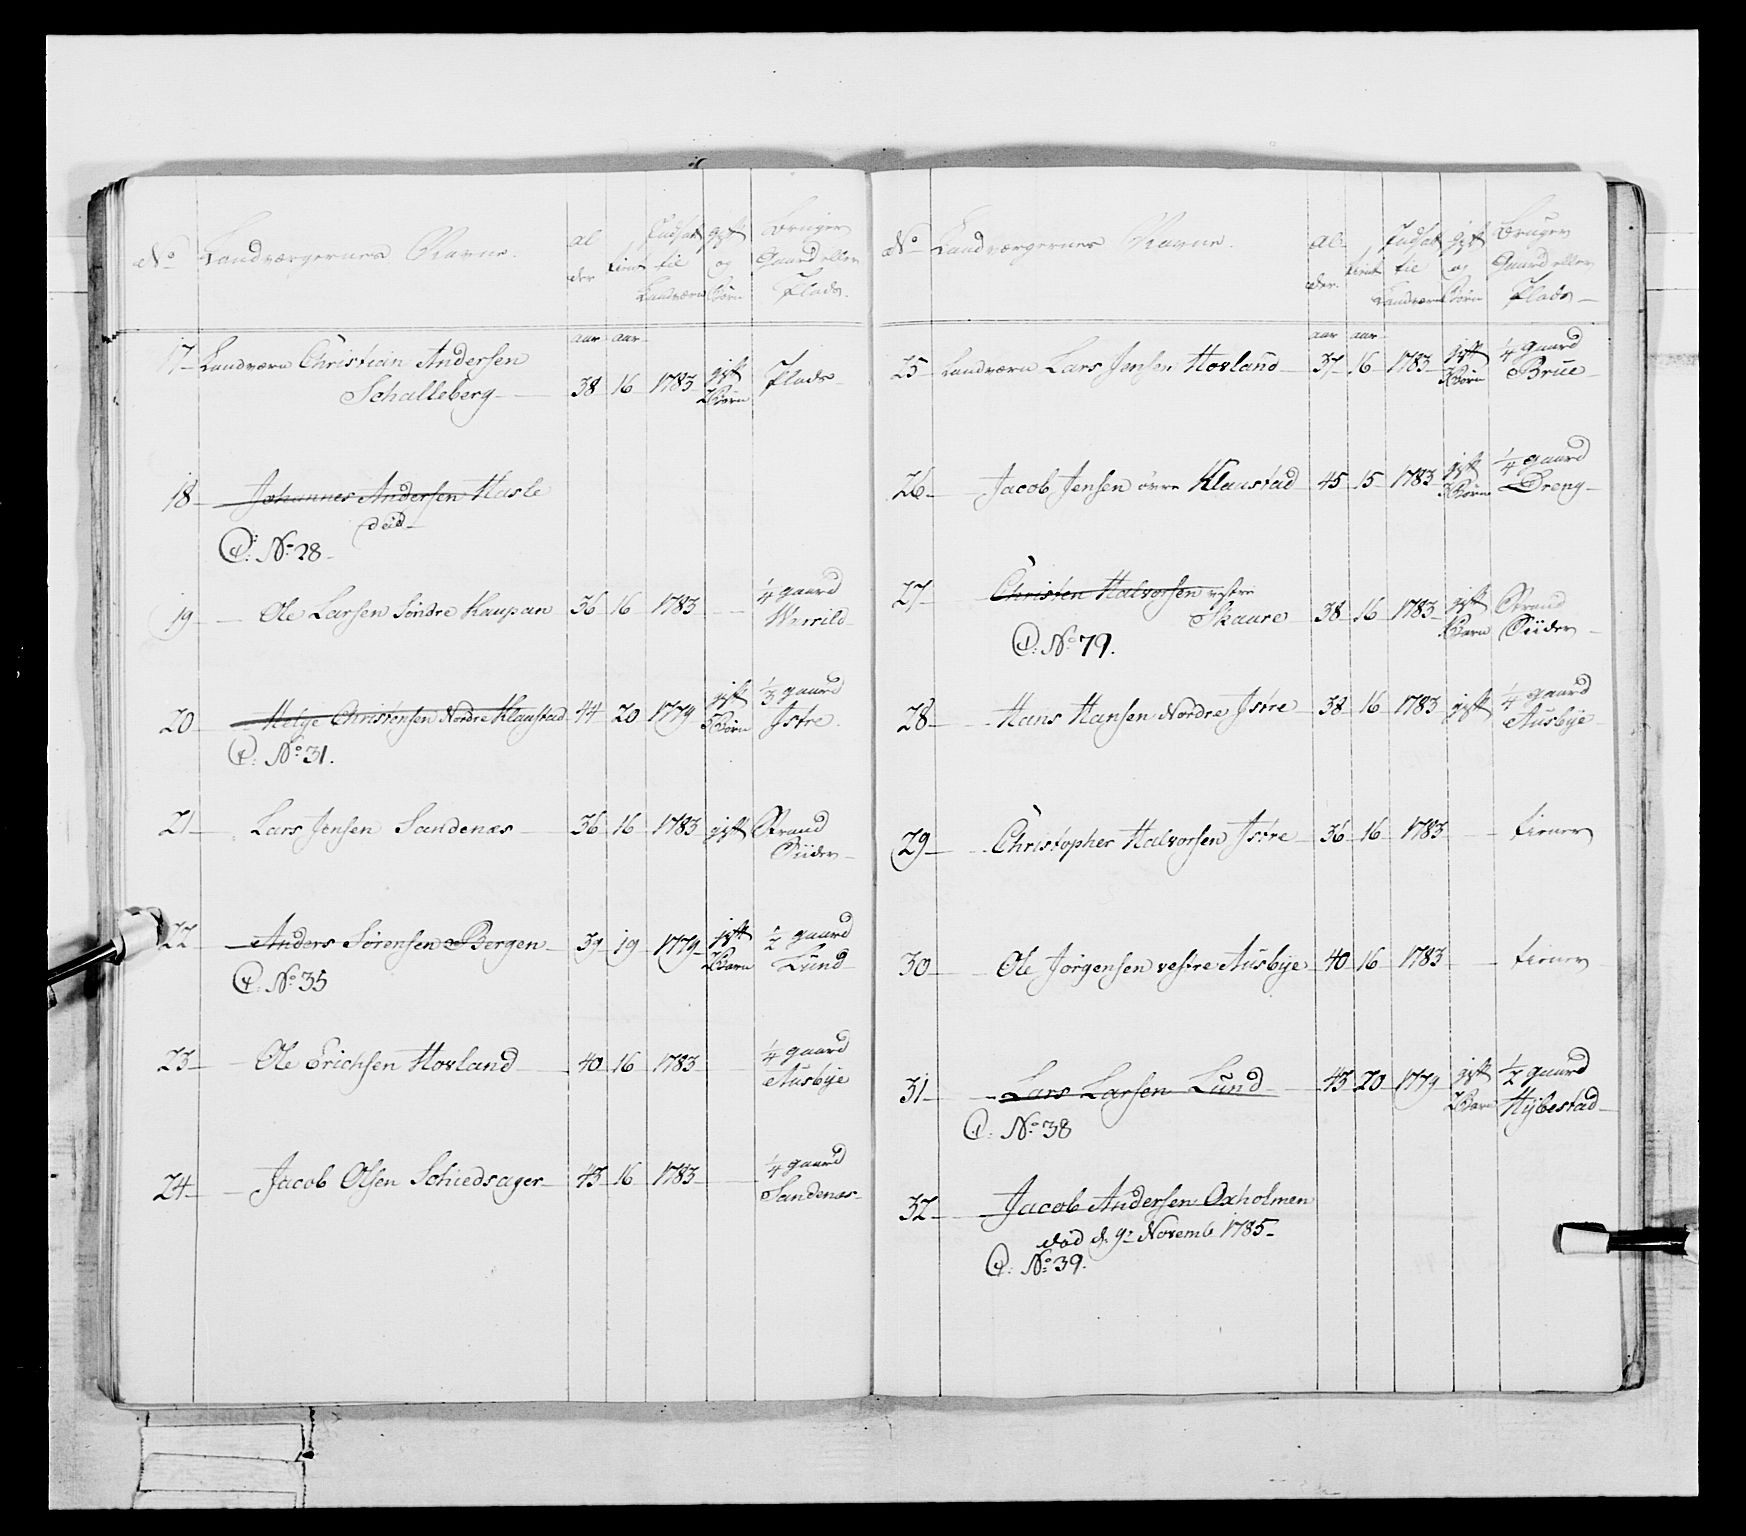 No Landværgernes Navne. al der tient Indsat til Landværn gift og Børn bruger Gaard eller Plads.
aar aar
17 Landværn Christian Andersen
Schalleberg 38 16 1783 gift 2 Børn Plads
18 Johannes Andersen Hasle
død
No 28
19 Ole Larsen Søndre Kaupan 36 16 1783 1/4 gaard
Werrild
20 Helge Christensen Nordre Klaustad 44 20 1779 gift 5 Børn 1/3 gaard
Istre
No 31.
21 Lars Jensen Sandenæs 36 16 1783 gift Strand
Siider
22 Anders Sørensen Bergen 39 19 1779 gift 2 Børn 1/2 gaard
Lund
No 35
23 Ole Erichsen Hovland 40 16 1783 1/4 gaard
Ausbÿe
24 Jacob Olsen Schiedsager 43 16 1783 1/4 gaard
Sandenæs
No Landværgernes Navne. al der. tient Indsat til Landværn gift og Børn Bruger Gaard eller Plads
aar aar
25 Landværn Lars Jensen Hovland 37 16 1783 gift Børn 1/4 gaard
Brue
26 Jacob Jensen øvre Klaustad 45 15 1783 gift 3 Børn 1/4 gaard
Dreng
27 Christen Halvorsen vestre
Skaure 38 16 1783 gift 1 Barn Strand
Siider
No 79.
28 Hans Hansen Nordre Istre 38 16 1783 gift 1/4 gaard
Ausbÿe
29 Christopher Halvorsen Istre 36 16 1783 tiener
30 Ole Jørgensen vestre Ausbÿe 40 16 1783 tiener
31 Lars Larsen Lund 43 20 1779 gift 2 Børn 1/2 gaard
Hÿbestad
No 38
32 Jacob Andersen Oxholmen
død d. 9 Novemb. 1785
No 39.